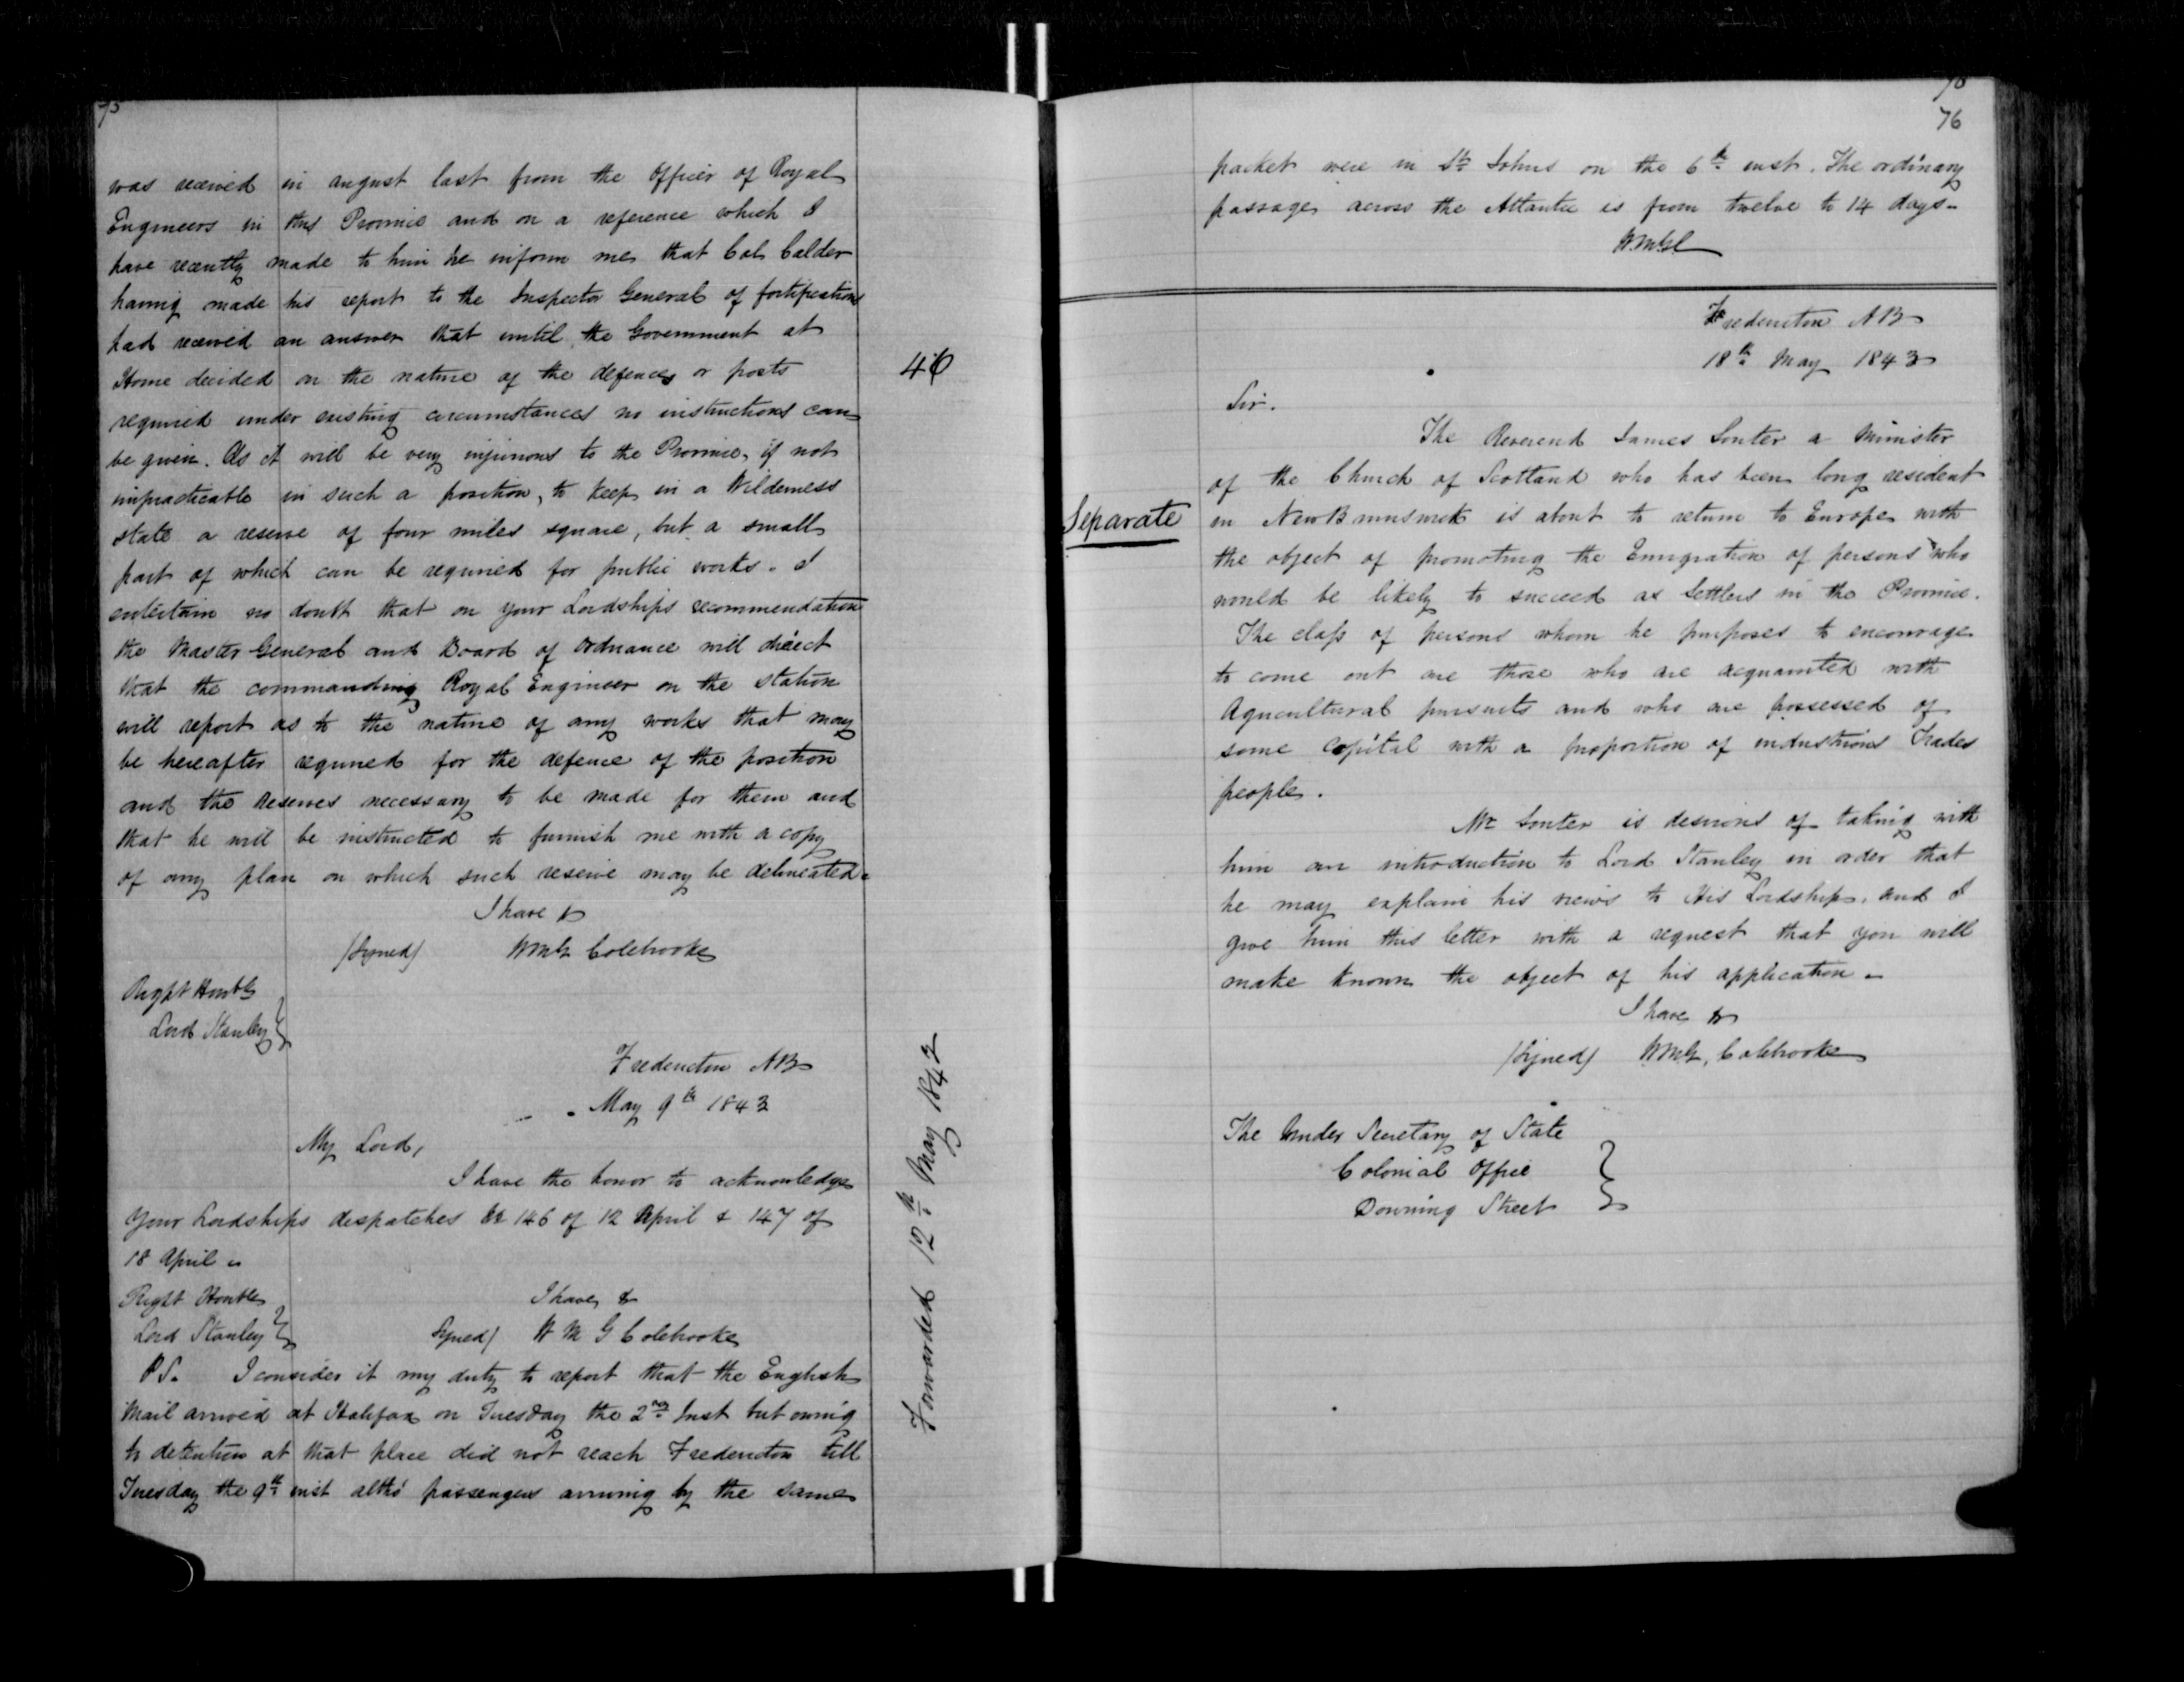 75
was received in august last from the Officer of Royal
Engineers in this Province and on a reference which I
have recently made to him he inform me that Col Calder
having made his report to the Inspector General of fortifications
had received an answer that until the Government at
Home decided on the nature of the defences or posts
required under existing circumstances no instructions can
be given. As it will be very injurious to the Province, if not
impracticable in such a position, to keep in a Wilderness
state a reserve of four miles square, but a small
part of which can be required for public works. I
entertain no doubt that on your Lordships recommendation
the Master General and Board of Ordnance will direct
that the commanding Royal Engineer on the station
will report as to the nature of any works that may
be hereafter required for the defence of the position
and the Reserves necessary to be made for them and
that he will be instructed to furnish me with a copy
of any plan on which such reserve may be delineated.
I have &
(Signed) W M G Colebrooke
Right Honble
Lord Stanley
46
Fredericton NB
May 9th 1843
My Lord,
I have the honor to acknowledge
Your Lordships despatches 146 of 12 April & 147 of
18 April
Right Honble I have &
Lord Stanley Signed) W M G Colebrooke
P.S. I consider it my duty to report that the English
Mail arrived at Halifax on Tuesday the 2nd Inst but owing
to detention at that place did not reach Fredericton till
Tuesday the 9th inst altho' passengers arriving by the same
Forwarded 12th May 1843
76
packet were in St Johns on the 6th inst. The ordinary
passage across the Atlantic is from twelve to 14 days.
W.M.G.C
Fredericton NB
18th May 1843
Sir.
The Reverend James Souter a Minister
of the Church of Scotland who has been long resident
Separate
in New Brunswick is about to return to Europe with
the object of promoting the Emigration of persons who
would be likely to succeed as Settlers in the Province.
The class of persons whom he purposes to encourage
to come out are those who are acquainted with
Agricultural pursuits and who are possessed of
some Capital with a proportion of industrious Trades
people.
Mr Souter is desirous of taking with
him an introduction to Lord Stanley in order that
he may explain his views to His Lordship, and I
give him this letter with a request that you will
make known the object of his application.
I have &
(Signed) W M G, Colebrooke
The Under Secretary of State
Colonial Office
Downing Street